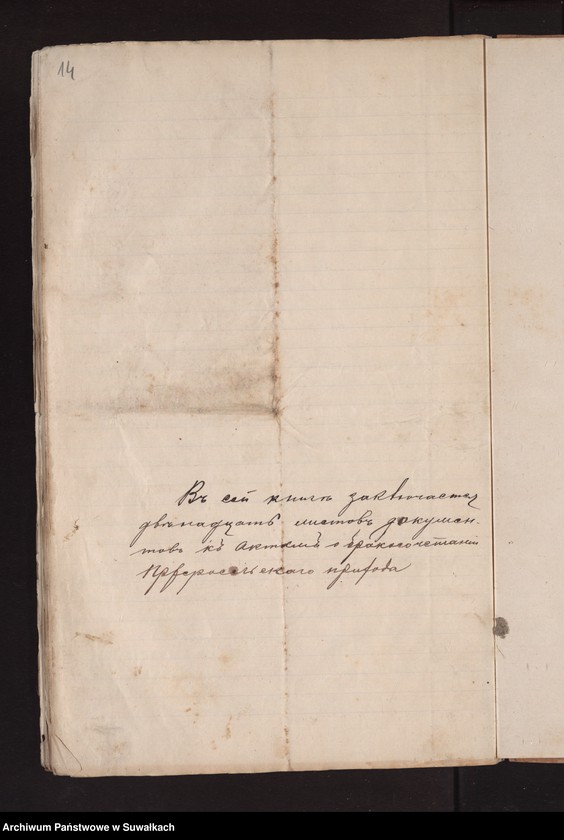 14
Въ сей книгѣ заключается
двѣнадцать листовъ докумен-
товъ къ Актамъ о бракосочетанiи
прихода
Archiwum Państwowe w Suwałkach